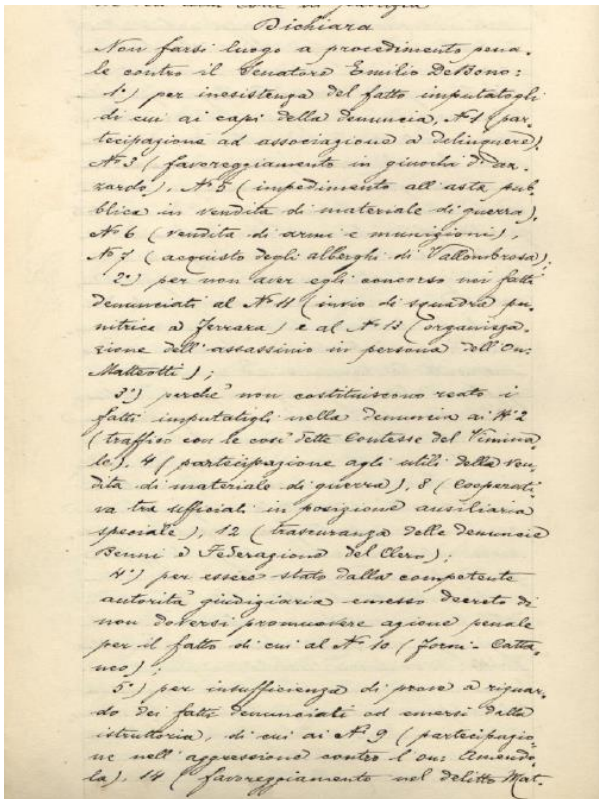 Dichiara
Non farsi luogo a procedimento pena-
le contro il Senatore Emilio De Bono:
1°) per inesistenza del fatto imputatogli
di cui ai capi della denuncia, N° 1 (par-
tecipazione ad associazione a delinquere),
N° 3 (favoreggiamento in giuochi d'az-
zardo), N° 5 (impedimento all'asta pub-
blica in vendita di materiale di guerra),
N° 6 (vendita di armi e munizioni),
N° 7 (acquisto degli alberghi di Vallombrosa);
2°) per non aver egli concorso nei fatti
denunciati al N° 11 (invio di squadra pu-
nitrice a Ferrara) e al N° 13 (organizza-
zione dell'assassinio in persona dell'On:
Matteotti);
3°) perchè non costituiscono reato i
fatti imputatigli nella denuncia ai N° 2
(traffico con le così dette Contesse del Vimina-
le), 4 (partecipazione agli utili della ven-
dita di materiale di guerra), 8 (Cooperati-
va tra ufficiali in posizione ausiliaria
speciale), 12 (trascuranza delle denuncie
Benni e Federazione del Clero);
4°) per essere stato dalla competente
autorità giudiziaria emesso decreto di
non doversi promuovere azione penale
per il fatto di cui al N° 10 (Forni-Catta-
neo);
5°) per insufficienza di prove a riguar-
do dei fatti denunciati od emersi dalla
istruttoria, di cui ai N° 9 (partecipazio-
ne nell'aggressione contro l'on: Amendo-
la), 14 (favoreggiamento nel delitto Mat-